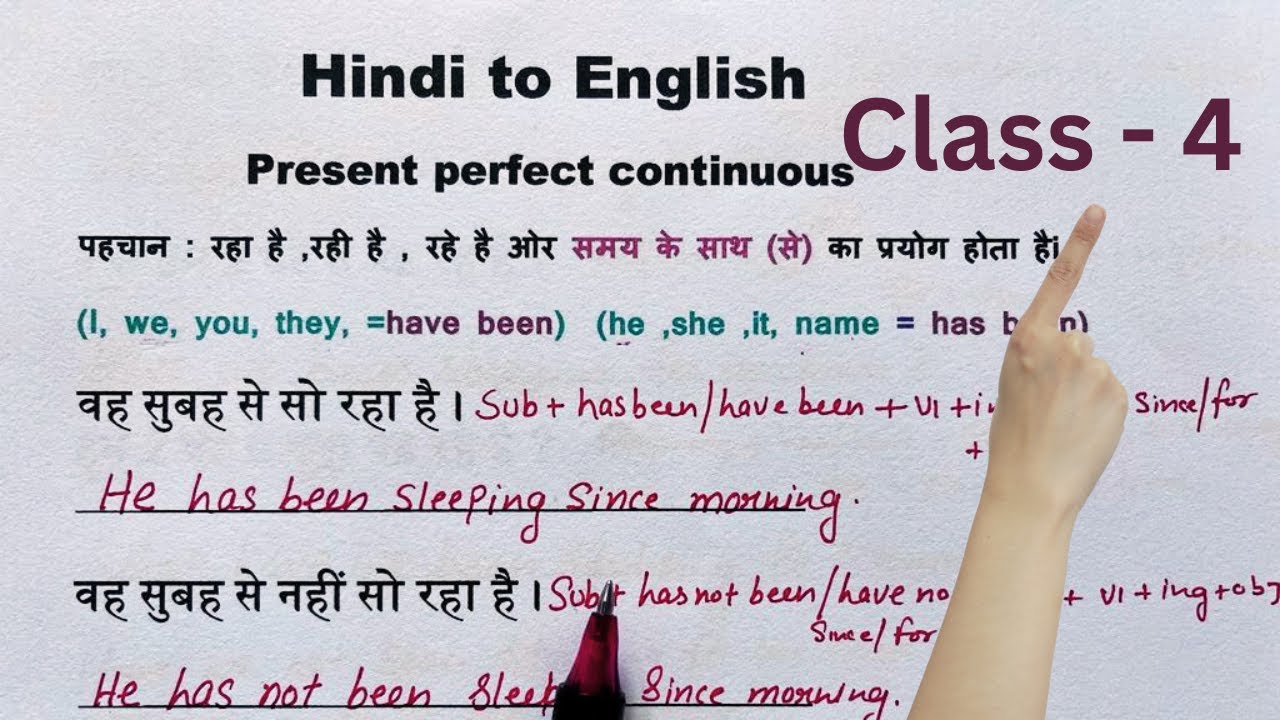 Hindi to English
Class - 4
Present perfect continuous
पहचान : रहा है ,रही है , रहे है ओर समय के साथ (से) का प्रयोग होता है।
(I, we, you, they, =have been) (he ,she ,it, name = has
वह सुबह से सो रहा है । Sub + has been/have been + V1 + Since/for
+
He has been sleeping since morning.
वह सुबह से नहीं सो रहा है । Sub + has not been/have + V1 + ing + obj
Since/for
He has not been since morning.